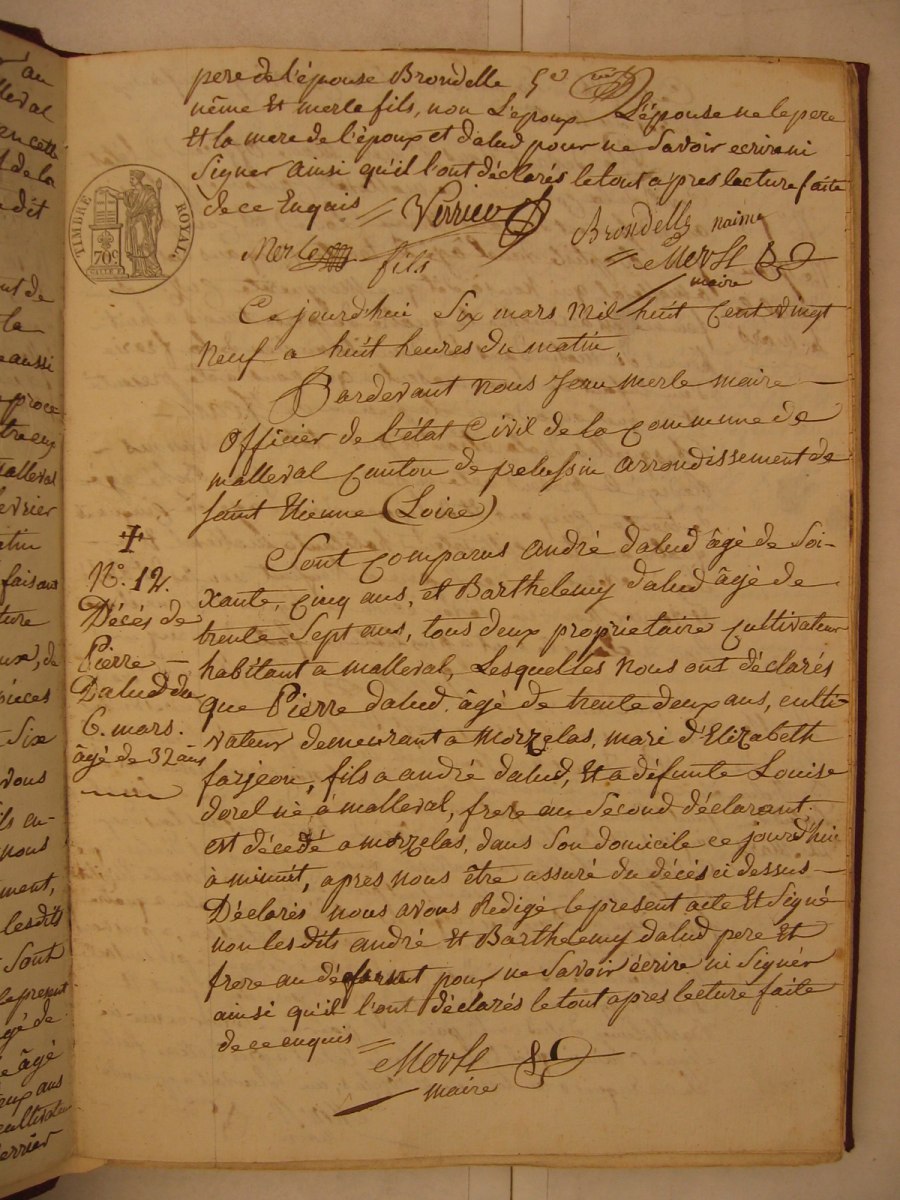 pere de l'épouse Brondelle
néme et merle fils, non L'epoux L'épouse ne le pere
Et la mere de l'époux et dalud pour ne Savoir ecrire ni
Signer ainsi qu'il l'ont déclarés le tout apres lecture faite
de ce Enquis Verrier
Brondelle naime
Merle fils
Merle
maire
TIMBRE ROYAL
70c
Ce jourd'hui Six mars mil huit Cent vingt
neuf a huit heures du matin,
Pardevant nous Jean merle maire
officier de l'état Civil de la Commune de
malleval Canton de pelussin arrondissement de
saint Etienne (Loire)
Sont Comparus andré dalud âgé de Soi-
xante, Cinq ans, et Barthelemy dalud âgé de
trente Sept ans, tous deux proprietaire Cultivateur
habitant a malleval, Lesquelles nous ont déclarés
que Pierre dalud, âgé de trente deux ans, culti-
vateur demeurant a Morzelas, mari d'Elizabeth
farjeon, fils a andré dalud, Et a défunte Louise
dorel né à malleval, frere au Second déclarant
est décédé a morzelas, dans Son domicile ce jourd'hui
à minuit, apres nous être assuré du décés ci dessus
Déclarés nous avons Redigé le present acte Et Signé
non lesdits andré Et Barthelemy dalud pere Et
frere au défunt pour ne Savoir écrire ni Signér
ainsi qu'il l'ont déclarés le tout apres lecture faite
de ce enquis
Merle
maire
N°. 12.
Décés de
Pierre
Dalud du
6. mars.
âgé de 32 ans